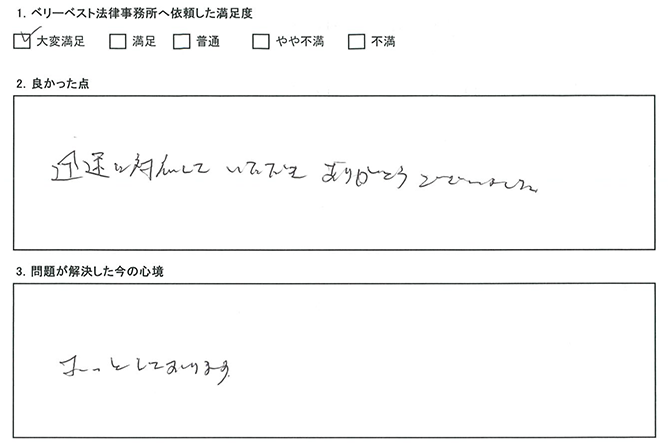 1. ベリーベスト法律事務所へ依頼した満足度
大変満足 満足 普通 やや不満 不満
2. 良かった点
迅速に対応して いただき ありがとう ございました。
3. 問題が解決した今の心境
ほっとしております。